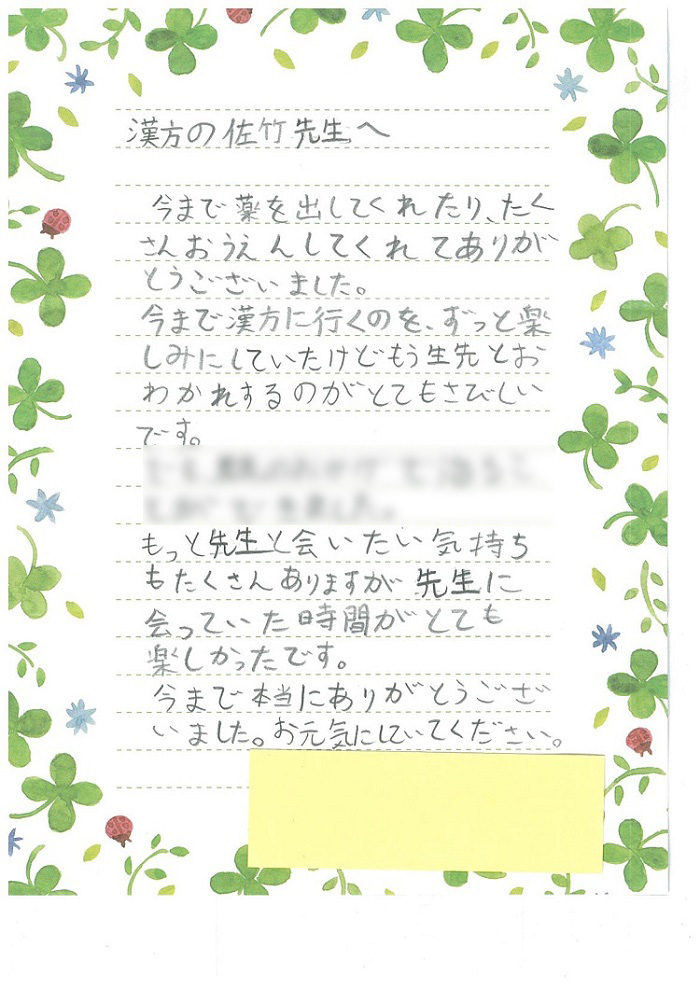 漢方の佐竹先生へ
今まで薬を出してくれたり、たく
さんおうえんしてくれてありが
とうございました。
今まで漢方に行くのを、ずっと楽
しみにしていたけどもう生先とお
わかれするのがとてもさびしい
です。
もっと先生と会いたい気持ち
もたくさんありますが先生に
会っていた時間がとても
楽しかったです。
今まで本当にありがとうござ
いました。お元気にしていてください。